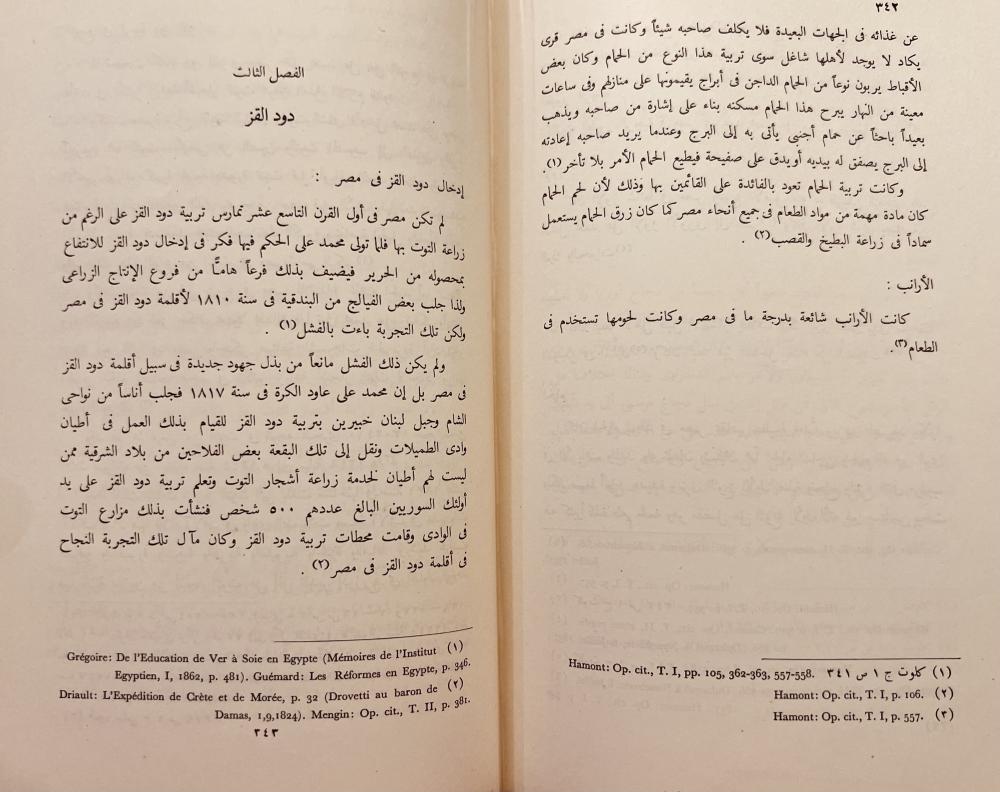 ٣٤٢
عن غذائه فى الجهات البعيدة فلا يكلف صاحبه شيئاً وكانت فى مصر قرى
يكاد لا يوجد لأهلها شاغل سوى تربية هذا النوع من الحمام وكان بعض
الأقباط يربون نوعاً من الحمام الداجن فى أبراج يقيمونها على منازلهم وفى ساعات
معينة من النهار يبرح هذا الحمام مسكنه بناء على إشارة من صاحبه ويذهب
بعيداً باحثاً عن حمام أجنبى يأتى به إلى البرج وعندما يريد صاحبه إعادته
إلى البرج يصفق له بيديه أو يدق على صفيحة فيطيع الحمام الأمر بلا تأخر(١).
وكانت تربية الحمام تعود بالفائدة على القائمين بها وذلك لأن لحم الحمام
كان مادة مهمة من مواد الطعام فى جميع أنحاء مصر كما كان زرق الحمام يستعمل
سماداً فى زراعة البطيخ والقصب(٢) .
الأرانب :
كانت الأرانب شائعة بدرجة ما فى مصر وكانت لحومها تستخدم فى
الطعام(٣).
(١) كلوت ج ١ ص ٣٤١ Hamont: Op. cit., T. I, pp. 105, 362-363, 557-558.
(٢) Hamont: Op. cit., T. I, p. 106.
(٣) Hamont: Op. cit., T. I, p. 557.
الفصل الثالث
دود القز
إدخال دود القز فى مصر :
لم تكن مصر فى أول القرن التاسع عشر تمارس تربية دود القز على الرغم من
زراعة التوت بها فلما تولى محمد على الحكم فيها فكر فى إدخال دود القز للانتفاع
بمحصوله من الحرير فيضيف بذلك فرعاً هامًّا من فروع الإنتاج الزراعى
ولذا جلب بعض الفيالج من البندقية فى سنة ١٨١٠ لأقلمة دود القز فى مصر
ولكن تلك التجربة باءت بالفشل(١) .
ولم يكن ذلك الفشل مانعاً من بذل جهود جديدة فى سبيل أقلمة دود القز
فى مصر بل إن محمد على عاود الكرة فى سنة ١٨١٧ فجلب أناساً من نواحى
الشام وجبل لبنان خبيرين بتربية دود القز للقيام بذلك العمل فى أطيان
وادى الطميلات ونقل إلى تلك البقعة بعض الفلاحين من بلاد الشرقية ممن
ليست لهم أطيان لخدمة زراعة أشجار التوت وتعلم تربية دود القز على يد
أولئك السوريين البالغ عددهم ٥٠٠ شخص فنشأت بذلك مزارع التوت
فى الوادى وقامت محطات تربية دود القز وكان مآل تلك التجربة النجاح
فى أقلمة دود القز فى مصر(٢) .
(١) Grégoire: De l'Education de Ver à Soie en Egypte (Mémoires de l'Institut
Egyptien, I, 1862, p. 481). Guémard: Les Réformes en Egypte, p. 346.
(٢) Driault: L'Expédition de Crète et de Morée, p. 32 (Drovetti au baron de
Damas, 1,9,1824). Mengin: Op. cit., T. II, p. 381.
٣٤٣